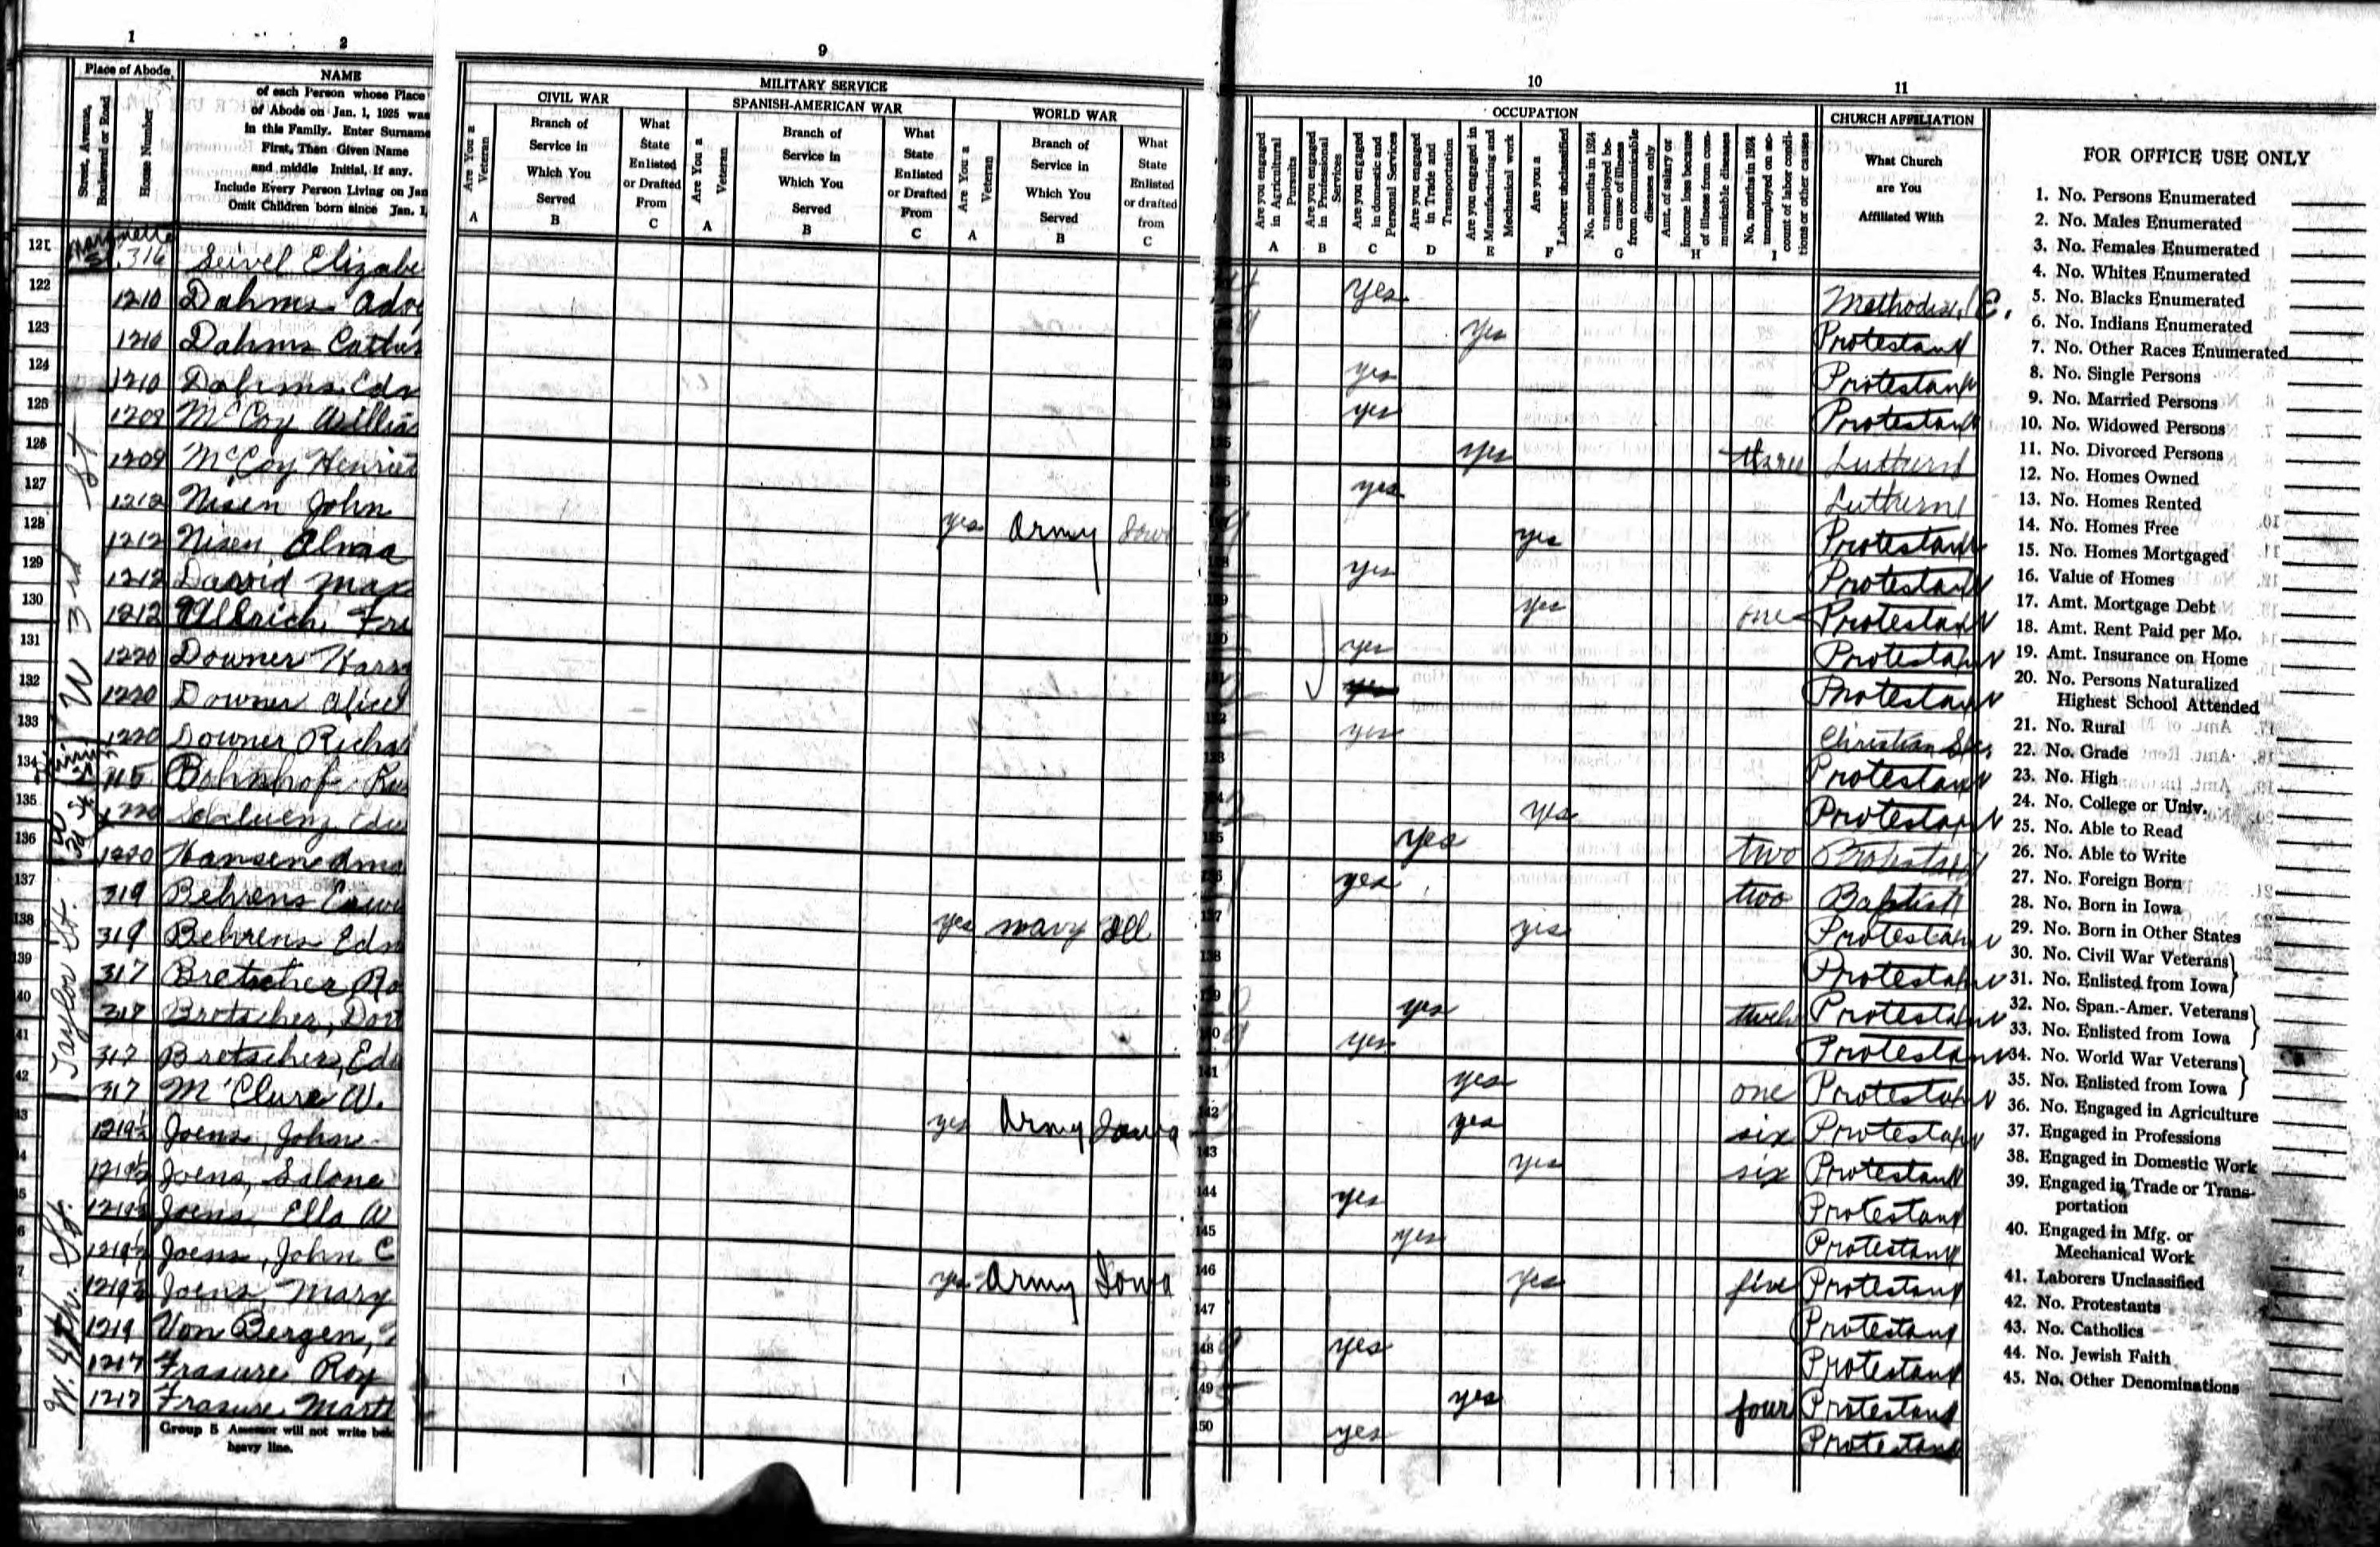 1 2 9 10 11
Place of Abode
Street, Avenue, Boulevard or Road
House Number
NAME
of each Person whose Place
of Abode on Jan. 1, 1925 was
in this Family. Enter Surname
First, Then Given Name
and middle Initial, if any.
Include Every Person Living on Jan
Omit Children born since Jan. 1,
MILITARY SERVICE
CIVIL WAR
Are You a Veteran
A
Branch of Service in Which You Served
B
What State Enlisted or Drafted From
C
SPANISH-AMERICAN WAR
Are You a Veteran
A
Branch of Service in Which You Served
B
What State Enlisted or Drafted From
C
WORLD WAR
Are You a Veteran
A
Branch of Service in Which You Served
B
What State Enlisted or drafted from
C
OCCUPATION
Are you engaged in Agricultural Pursuits
A
Are you engaged in Professional Services
B
Are you engaged in domestic and Personal Services
C
Are you engaged in Trade and Transportation
D
Are you engaged in Manufacturing and Mechanical work
E
Are you a Laborer unclassified
F
No. months in 1924 unemployed because of illness from communicable diseases only
G
Amt. of salary or income loss because of illness from communicable diseases
H
No. months in 1924 unemployed on account of labor conditions or other causes
I
CHURCH AFFILIATION
What Church are You Affiliated With
121 316 Elizabe yes Methodist E.
122 1210 Dahms Yes Protestant
123 1210 Dahms yes Protestant
124 1210 Dahms Edn yes Protestant
125 1208 McCoy Willia Yes three Luthern
126 1208 McCoy Henriet yes Luthern
127 1212 Nisen John yes Army Iowa yes Protestant
128 1212 Nisen Alma yes Protestant
129 1212 David Max yes one Protestant
130 1212 Ullrich, Fre yes Protestant
131 1220 Downer Harr yes Protestant
132 1220 Downer Alice yes Christian
133 1220 Downer Richa Protestant
134 115 Bohnhof yes Protestant
135 1220 Edw yes two Protestant
136 1220 Hansen Ama yes two Baptist
137 319 Behrens yes navy Ill yes Protestant
138 319 Behrens Edn Protestant
139 317 Bretscher Ro yes Protestant
140 317 Bretscher, Dor yes Protestant
141 317 Bretscher, Edw yes one Protestant
142 317 McClure W. yes Army Iowa yes six Protestant
143 1219½ Joens, John yes six Protestant
144 1219½ Joens, yes Protestant
145 1219½ Joens Ella W yes Protestant
146 1219½ Joens, John C yes Army Iowa Yes five Protestant
147 1219½ Joens, Mary Protestant
148 1219 Von Bergen, yes Protestant
149 1217 Frasure Roy yes four Protestant
150 1217 Frasure, Marth yes Protestant
W 3rd St
Taylor St.
W. 4th. St.
Group 5 Assessor will not write below
heavy line.
FOR OFFICE USE ONLY
1. No. Persons Enumerated
2. No. Males Enumerated
3. No. Females Enumerated
4. No. Whites Enumerated
5. No. Blacks Enumerated
6. No. Indians Enumerated
7. No. Other Races Enumerated
8. No. Single Persons
9. No. Married Persons
10. No. Widowed Persons
11. No. Divorced Persons
12. No. Homes Owned
13. No. Homes Rented
14. No. Homes Free
15. No. Homes Mortgaged
16. Value of Homes
17. Amt. Mortgage Debt
18. Amt. Rent Paid per Mo.
19. Amt. Insurance on Home
20. No. Persons Naturalized
Highest School Attended
21. No. Rural
22. No. Grade
23. No. High
24. No. College or Univ.
25. No. Able to Read
26. No. Able to Write
27. No. Foreign Born
28. No. Born in Iowa
29. No. Born in Other States
30. No. Civil War Veterans
31. No. Enlisted from Iowa
32. No. Span.-Amer. Veterans
33. No. Enlisted from Iowa
34. No. World War Veterans
35. No. Enlisted from Iowa
36. No. Engaged in Agriculture
37. Engaged in Professions
38. Engaged in Domestic Work
39. Engaged in Trade or Trans-
portation
40. Engaged in Mfg. or
Mechanical Work
41. Laborers Unclassified
42. No. Protestants
43. No. Catholics
44. No. Jewish Faith
45. No. Other Denominations